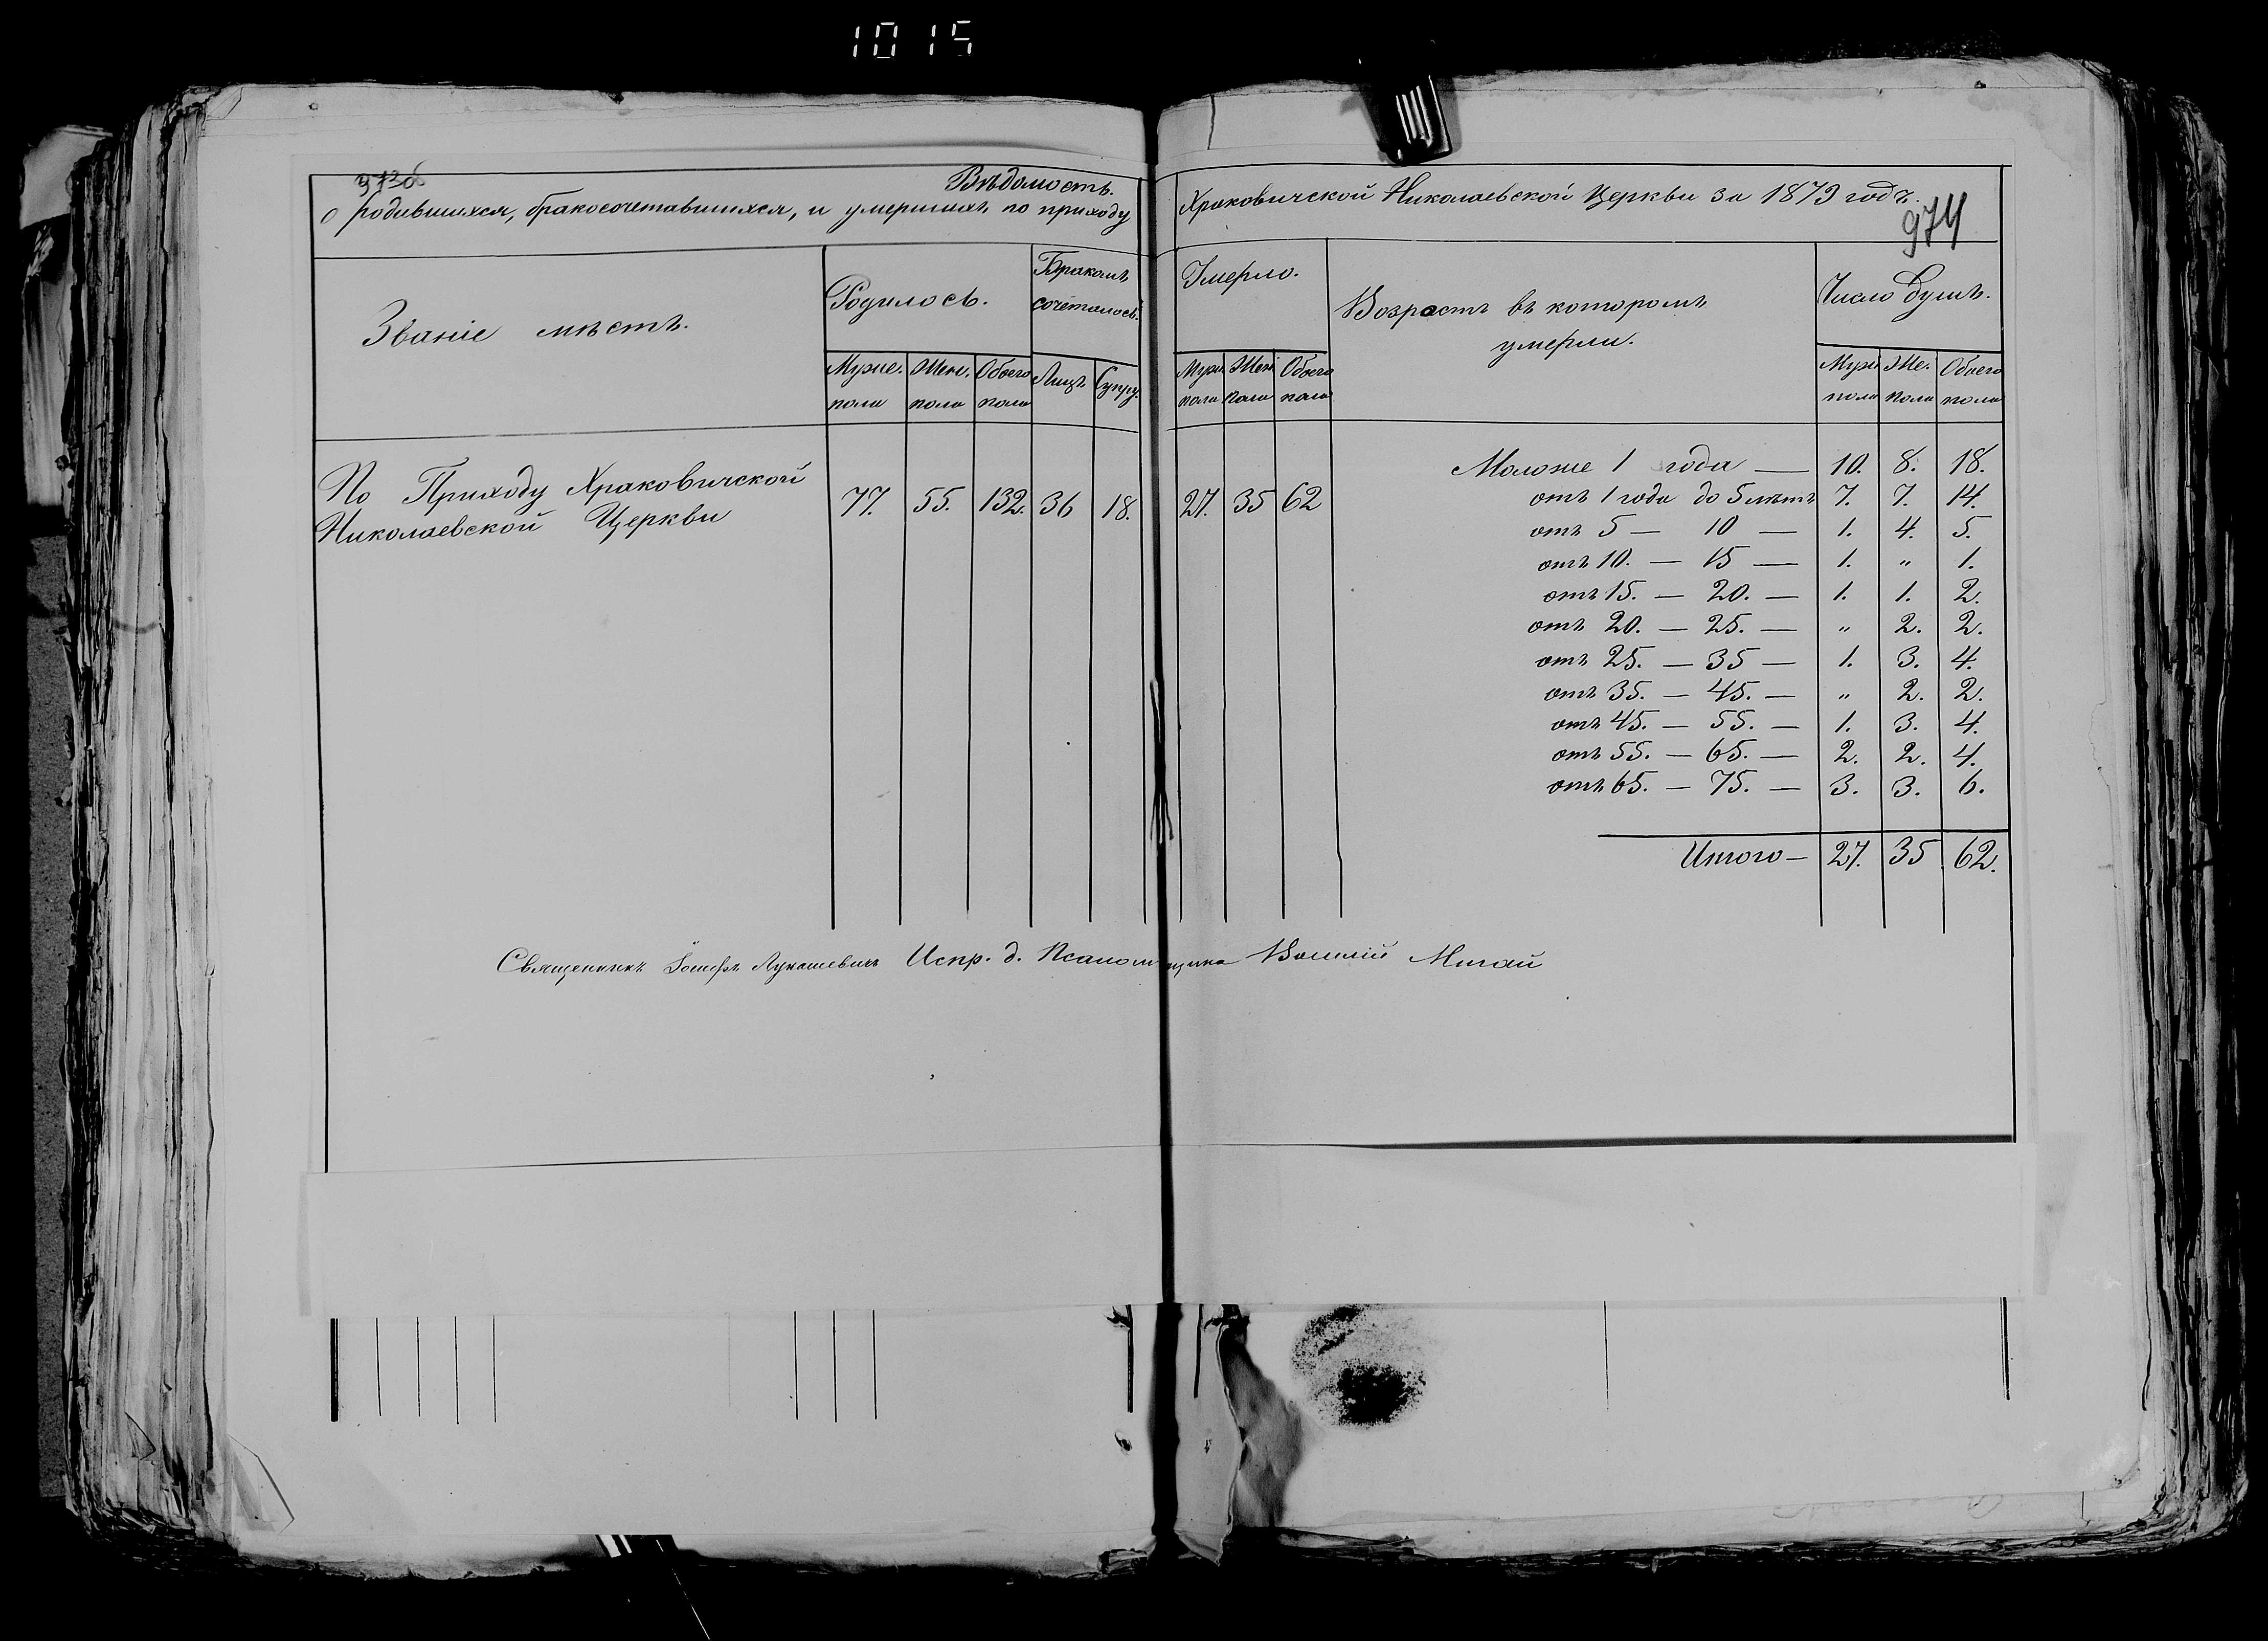 1015
973об
Вѣдомость.
о родившихся, бракосочетавшихся, и умершихъ по приходу
Храковичской Николаевской Церкви за 1879 годъ.
974
Званіе мѣстъ.
Родилось.
Бракомъ
сочеталось.
Мужес. Жен. Обоего Лицъ. Супру.
пола пола пола
По Приходу Храковичской
Николаевской Церкви
77. 55. 132. 36 18.
Умерло.
Возрастъ въ которомъ
умерли.
Число душъ.
Муж Жен Обоего
пола пола пола
Муж Же. Обоего
пола пола пола
27. 35 62
Моложе 1 года — 10. 8. 18.
отъ 1 года до 5 лѣтъ 7. 7. 14.
отъ 5 — 10 — 1. 4. 5.
отъ 10. — 15 — 1. " 1.
отъ 15. — 20. — 1. 1. 2.
отъ 20. — 25. — " 2. 2.
отъ 25. — 35 — 1. 3. 4.
отъ 35. — 45. — " 2. 2.
отъ 45. — 55. — 1. 3. 4.
отъ 55. — 65. — 2. 2. 4.
отъ 65. — 75. — 3. 3. 6.
Итого — 27. 35 62.
Священникъ Іосифъ Лукашевичъ Испр. д. Псаломщика Василій Мигай